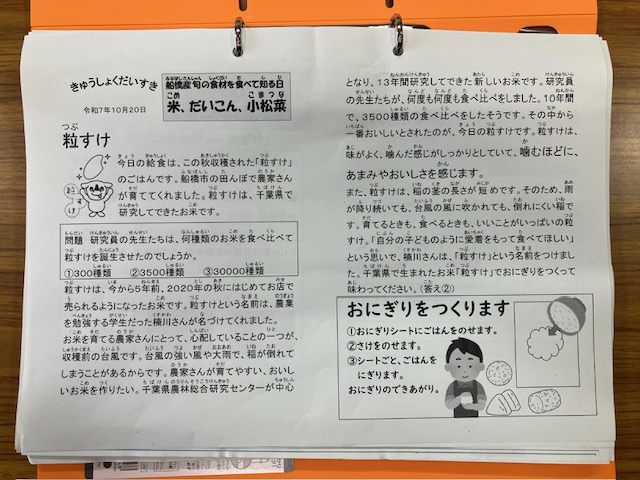 きゅうしょくだいすき
令和7年10月20日
船橋産旬の食材を食べて知る日
米、だいこん、小松菜
粒すけ
今日の給食は、この秋収穫された「粒すけ」
のごはんです。船橋市の田んぼで農家さん
が育ててくれました。粒すけは、千葉県で
研究してできたお米です。
粒すけ
問題 研究員の先生たちは、何種類のお米を食べ比べて
粒すけを誕生させたのでしょうか。
①300種類 ②3500種類 ③30000種類
粒すけは、今から5年前、2020年の秋にはじめてお店で
売られるようになったお米です。粒すけという名前は、農業
を勉強する学生だった桶川さんが名づけてくれました。
お米を育てる農家さんにとって、心配していることの一つが、
収穫前の台風です。台風の強い風や大雨で、稲が倒れて
しまうことがあるからです。農家さんが育てやすい、おいし
いお米を作りたい。千葉県農林総合研究センターが中心
となり、13年間研究してできた新しいお米です。研究員
の先生たちが、何度も何度も食べ比べをしました。10年間
で、3500種類の食べ比べをしたそうです。その中から
一番おいしいとされたのが、今日の粒すけです。粒すけは、
味がよく、噛んだ感じがしっかりとしていて、噛むほどに、
あまみやおいしさを感じます。
また、粒すけは、稲の茎の長さが短めです。そのため、雨
が降り続いても、台風の風に吹かれても、倒れにくい稲で
す。育てるときも、食べるときも、いいことがいっぱいの粒
すけ。「自分の子どものように愛着をもって食べてほしい」
という思いで、桶川さんは、「粒すけ」という名前をつけまし
た。千葉県で生まれたお米「粒すけ」でおにぎりをつくって
味わってください。（答え②）
おにぎりをつくります
①おにぎりシートにごはんをのせます。
②さけをのせます。
③シートごと、ごはんを
にぎります。
おにぎりのできあがり。